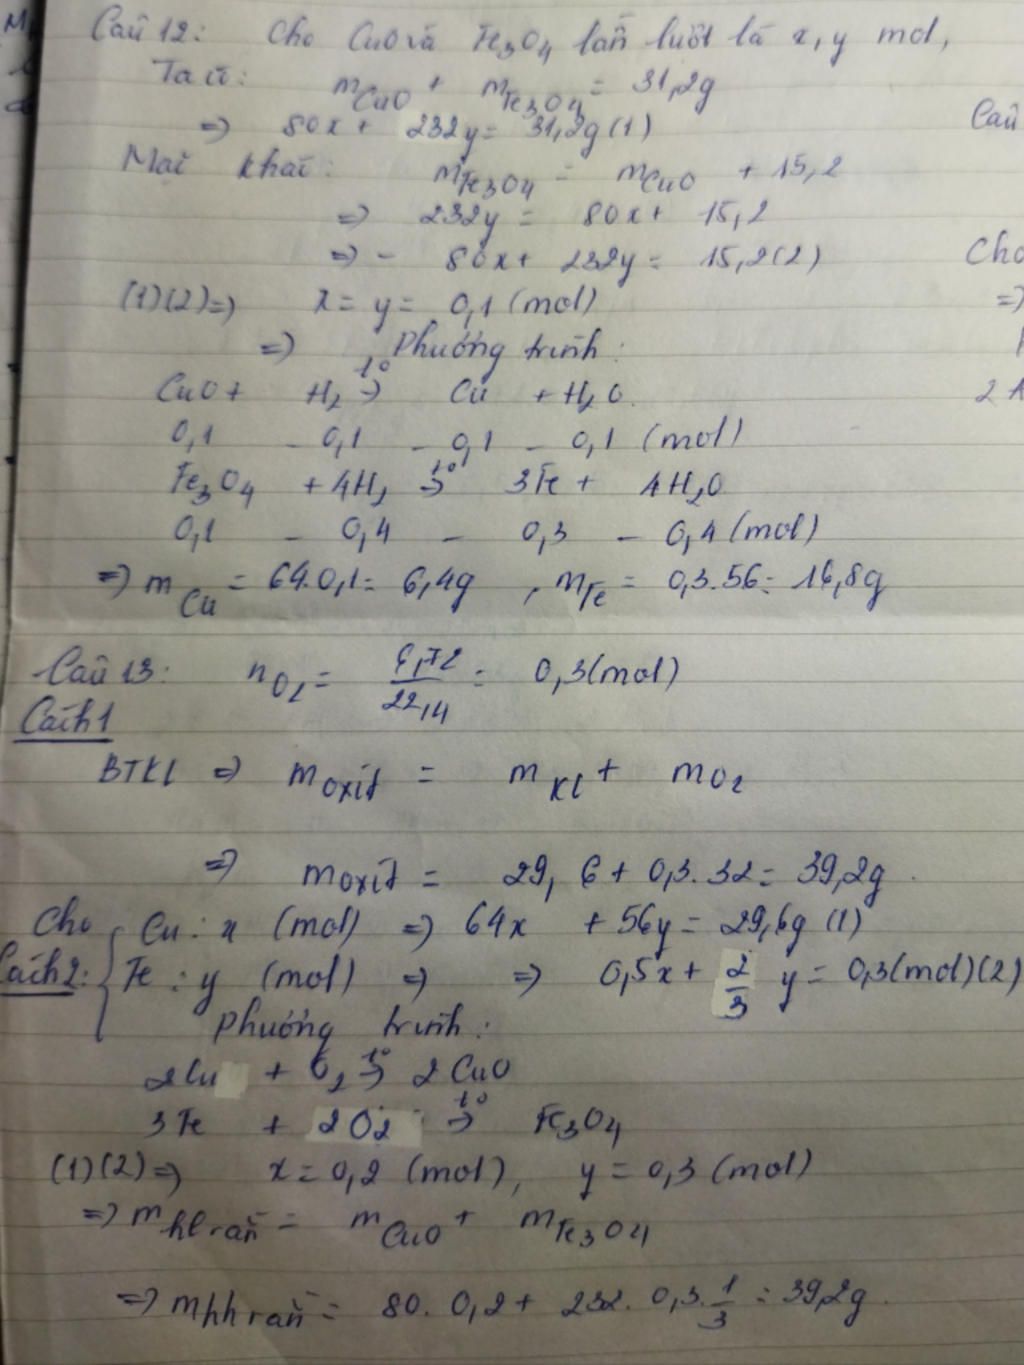 Câu 12: Cho CuO và Fe3O4 lần lượt là x, y mol,
Ta có: mCuO + mFe3O4 = 31,2g
=> 80x + 232y = 31,2g (1)
Câu
Mặt khác: mFe3O4 = mCuO + 15,2
=> 232y = 80x + 15,2
=> - 80x + 232y = 15,2 (2)
Cho
(1)(2) => x = y = 0,1 (mol)
=>
=> Phương trình:
CuO + H2 t°→ Cu + H2O
2 A
0,1 - 0,1 - 0,1 - 0,1 (mol)
Fe3O4 + 4H2 t°→ 3Fe + 4H2O
0,1 - 0,4 - 0,3 - 0,4 (mol)
=> mCu = 64.0,1 = 6,4g , mFe = 0,3.56 = 16,8g
Câu 13: nO2 = 6,72/22,4 = 0,3 (mol)
Cách 1
BTKL => moxit = mKL + mO2
=> moxit = 29,6 + 0,3.32 = 39,2g.
Cho Cu: x (mol) => 64x + 56y = 29,6g (1)
Cách 2: Fe: y (mol) => => 0,5x + 2/3 y = 0,3 (mol) (2)
Phương trình:
2Cu + O2 t°→ 2CuO
3Fe + 2O2 t°→ Fe3O4
(1)(2) => x = 0,2 (mol), y = 0,3 (mol)
=> mhh rắn = mCuO + mFe3O4
=> mhh rắn = 80. 0,2 + 232. 0,3. 1/3 = 39,2g.